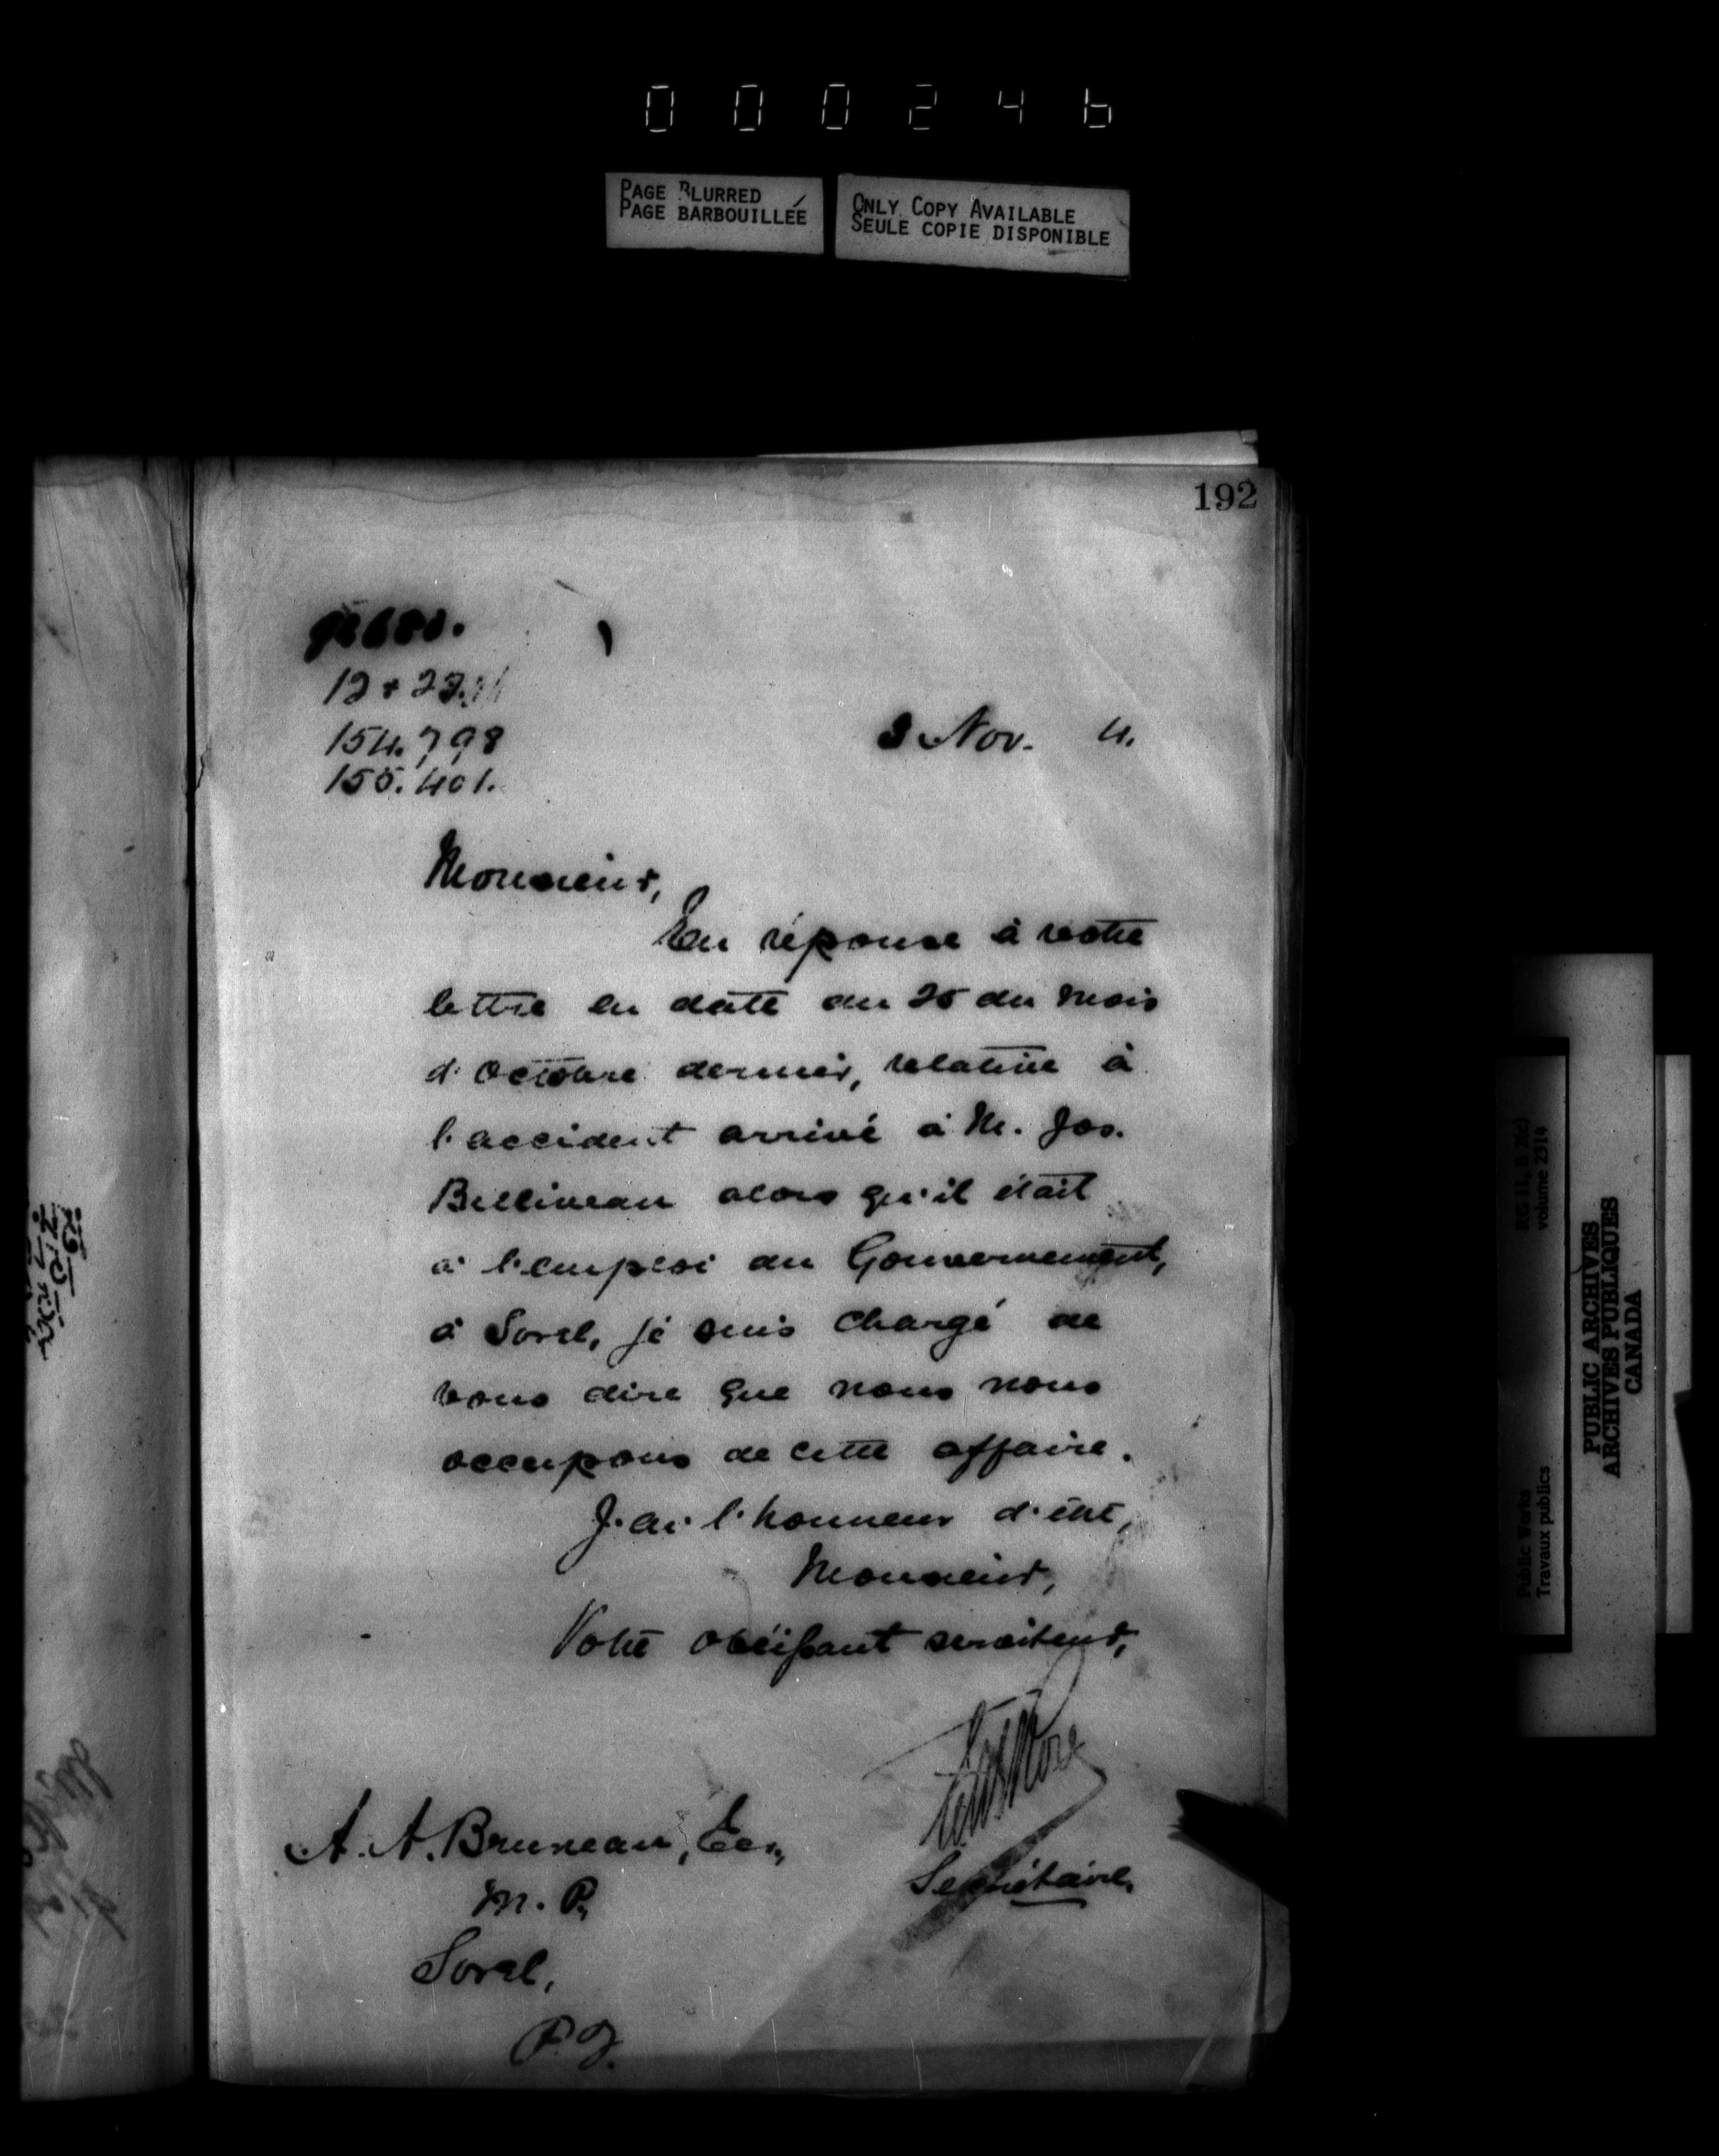 000246
PAGE BLURRED
PAGE BARBOUILLÉE
ONLY COPY AVAILABLE
SEULE COPIE DISPONIBLE
192
154.798
155.401.
3 Nov. 4.
Monsieur,
En réponse à votre
lettre en date du 25 du mois
d'Octobre dernier, relative à
l'accident arrivé à M. Jos.
Belliveau alors qu'il était
à l'emploi du Gouvernement,
à Sorel, je suis chargé de
vous dire que nous nous
occupons de cette affaire.
J'ai l'honneur d'être,
Monsieur,
Votre obéissant serviteur,
Secrétaire.
A. A. Bruneau, Ecr.,
M. P.
Sorel,
P.Q.
RG 11, B 2(c)
volume 2314
Public Works
Travaux publics
PUBLIC ARCHIVES
ARCHIVES PUBLIQUES
CANADA